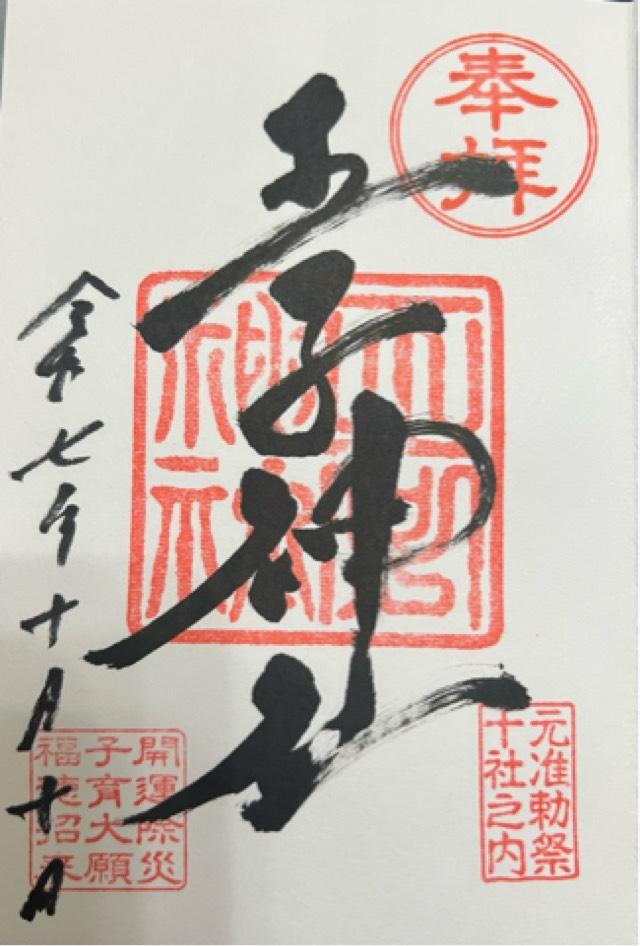 奉拝
王子神社
元准勅祭
十社之内
開運除災
子育大願
福徳招来
令和七年十月十日